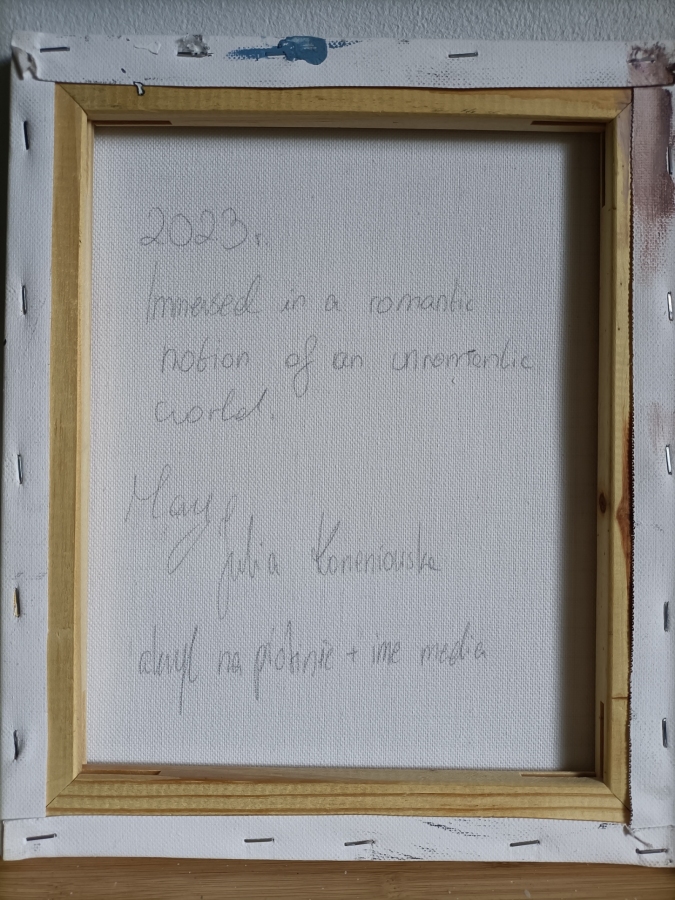 2023r.
Immersed in a romantic
notion of an unromantic
world.
May
Julia
akryl na płótnie + inne media